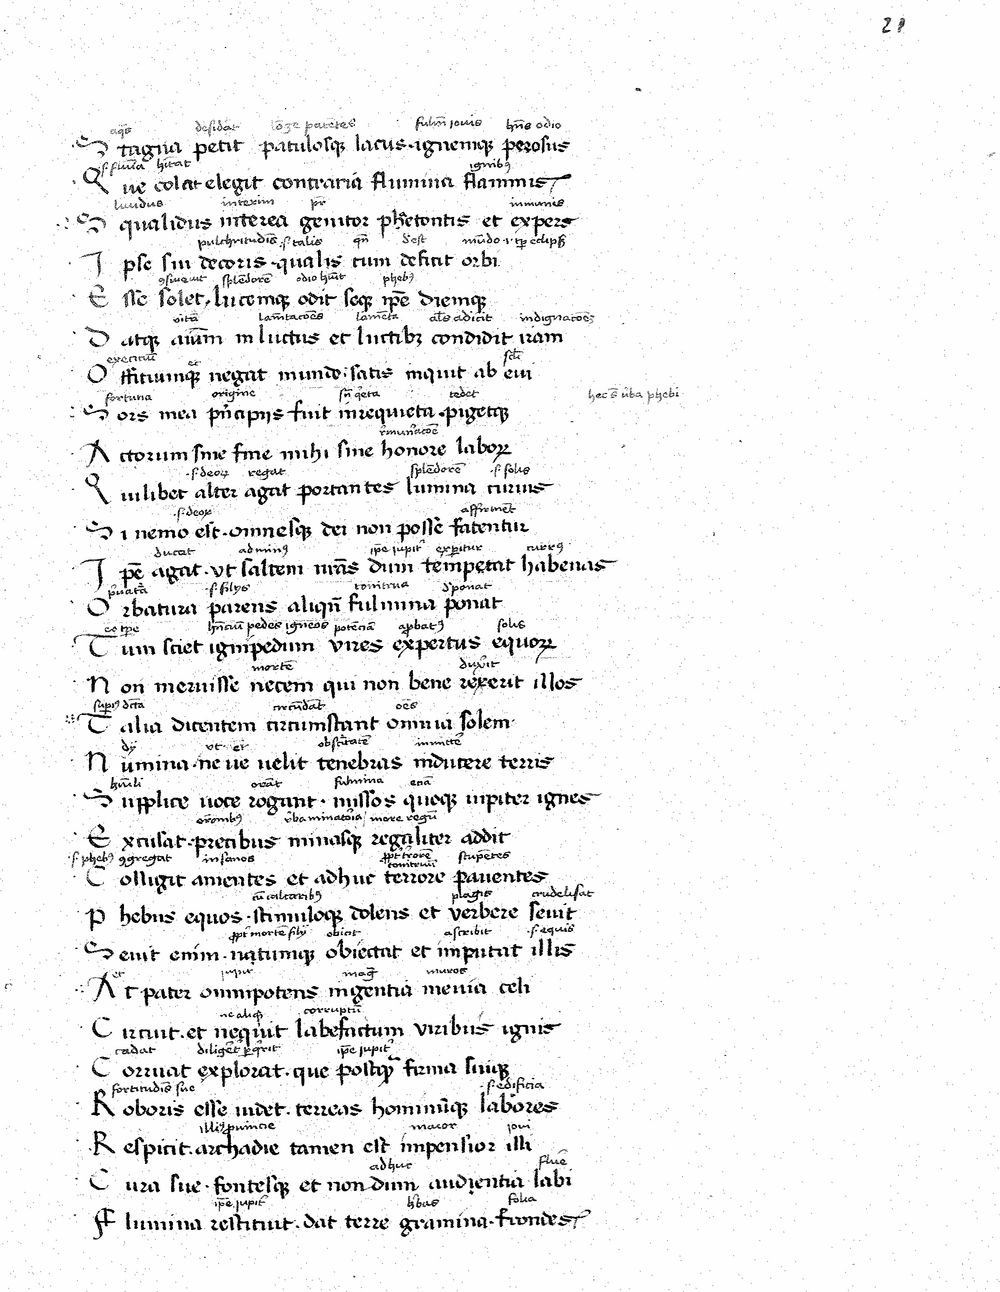 21
aq̄s desid̄at lōge patētes fulm̄ iouis hn̄s odio
S tagna petit patulosq̨ lacus · ignemq̨ perosus
·s· fluuīa hītat ignibꝰ
Q ue colat elegit contraria flumina flammis
luridus interim pr̄ inmunis
S qualidus interea genitor phetontis et expers
pulchritudīs ·s· talis qn̄ dēst mūdo
I pse sui decoris · qualis cum deficit orbi
splēdorē odio hūit phebꝰ
E sse solet · lucemq̨ odit seq̨ ip̄e diemq̨
vitā lam̄tacōes lamēta indignacōēs
D atq̨ aīum in luctus et luctibꝫ condidit iram
exercitiū et
O ffitiumq̨ negat mundo · satis inquit ab eui
fortuna origine sn̄ q̄eta tedet hec s̄ ūba phebi
S ors mea p̄ncipijs fuit inrequieta · pigetq̨
A ctorum sine fine mihi sine honore laboꝝ
·s· deoꝝ regat splēdorē ·s· solis
Q uilibet alter agat portantes lumina currus
·s· deoꝝ affirmēt
S i nemo est · omnesq̨ dei non posse fatentur
ducat adminꝰ ip̄e iupit̄ expitur currꝰ
I pē agat · vt saltem nr̄as dum temptat habenas
p̄uatā ·s· filijs tonitrua dponat
O rbatura parens aliqn̄ fulmina ponat
eo tp̄e pedes igneos potēciā solis
T um sciet ignipedum vires expertus equoꝝ
mortē duxit
N on meruisse necem qui non bene rexerit illos
circūdāt oēs
T alia dicentem circumstant omnia solem
dij vt ei
N umina · ne ve uelit tenebras inducere terris
hūili orāt fulmina etiā
S upplice uoce rogant · missos quoq̨ iupiter ignes
ūba minatoria more regū
E xcusat · precibus minasq̨ regaliter addit
·s· phebꝰ ꝯgregat insanos stupētes
C olligit amentes et adhuc terrore pauentes
cū calcaribꝰ plagis
P hebus equos · stimuloq̨ dolens et verbere seuit
mortē filij obicit ascribit ·s· equis
S euit enim · natumq̨ obiectat et imputat illis
et iupit̄ maḡ muros
A t pater omnipotens ingentia menia celi
ne aliq̨ corruptū
C ircuit · et nequit labefactum viribus ignis
cadat ip̄e iupit̄
C orruat explorat · que postq̄ firma suiq̨
fortitudīs sue ·s· edificia
R oboris esse uidet · terreas hominūq̨ labores
illiꝰ p̄uincie maior ioui
R espicit · archadie tamen est impensior illi
adhuc fluē
C ura sue · fontesq̨ et nondum audientia labi
ip̄e iupit̄ h̄bas folia
F lumina restituit · dat terre gramina · frondes